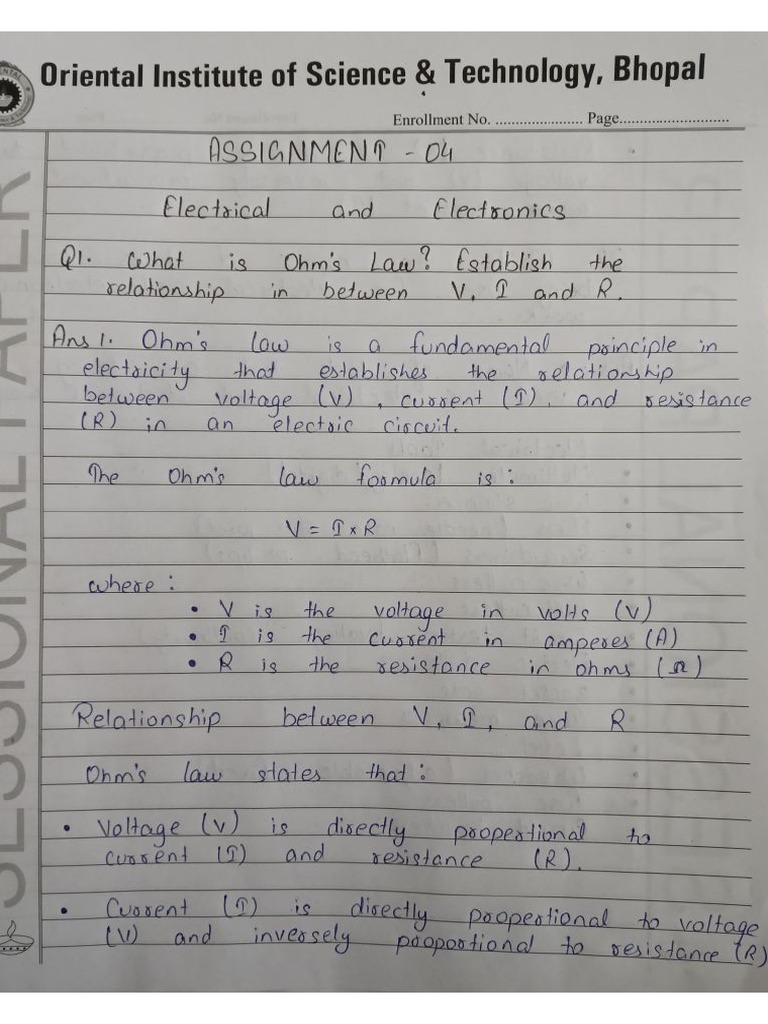 Oriental Institute of Science & Technology, Bhopal
Enrollment No. ...................... Page............................
ASSIGNMENT - 04
Electrical and Electronics
Q1. What is Ohm's Law? Establish the
relationship in between V, I and R.
Ans 1. Ohm's law is a fundamental principle in
electricity that establishes the relationship
between voltage (V), current (I), and resistance
(R) in an electric circuit.
The Ohm's law formula is :
V = I × R
where :
• V is the voltage in volts (V)
• I is the current in amperes (A)
• R is the resistance in ohms (Ω)
Relationship between V, I, and R
Ohm's law states that :
• Voltage (V) is directly propertional to
current (I) and resistance (R).
• Current (I) is directly propertional to voltage
(V) and inversely proportional to resistance (R)
SESSIONAL PAPER